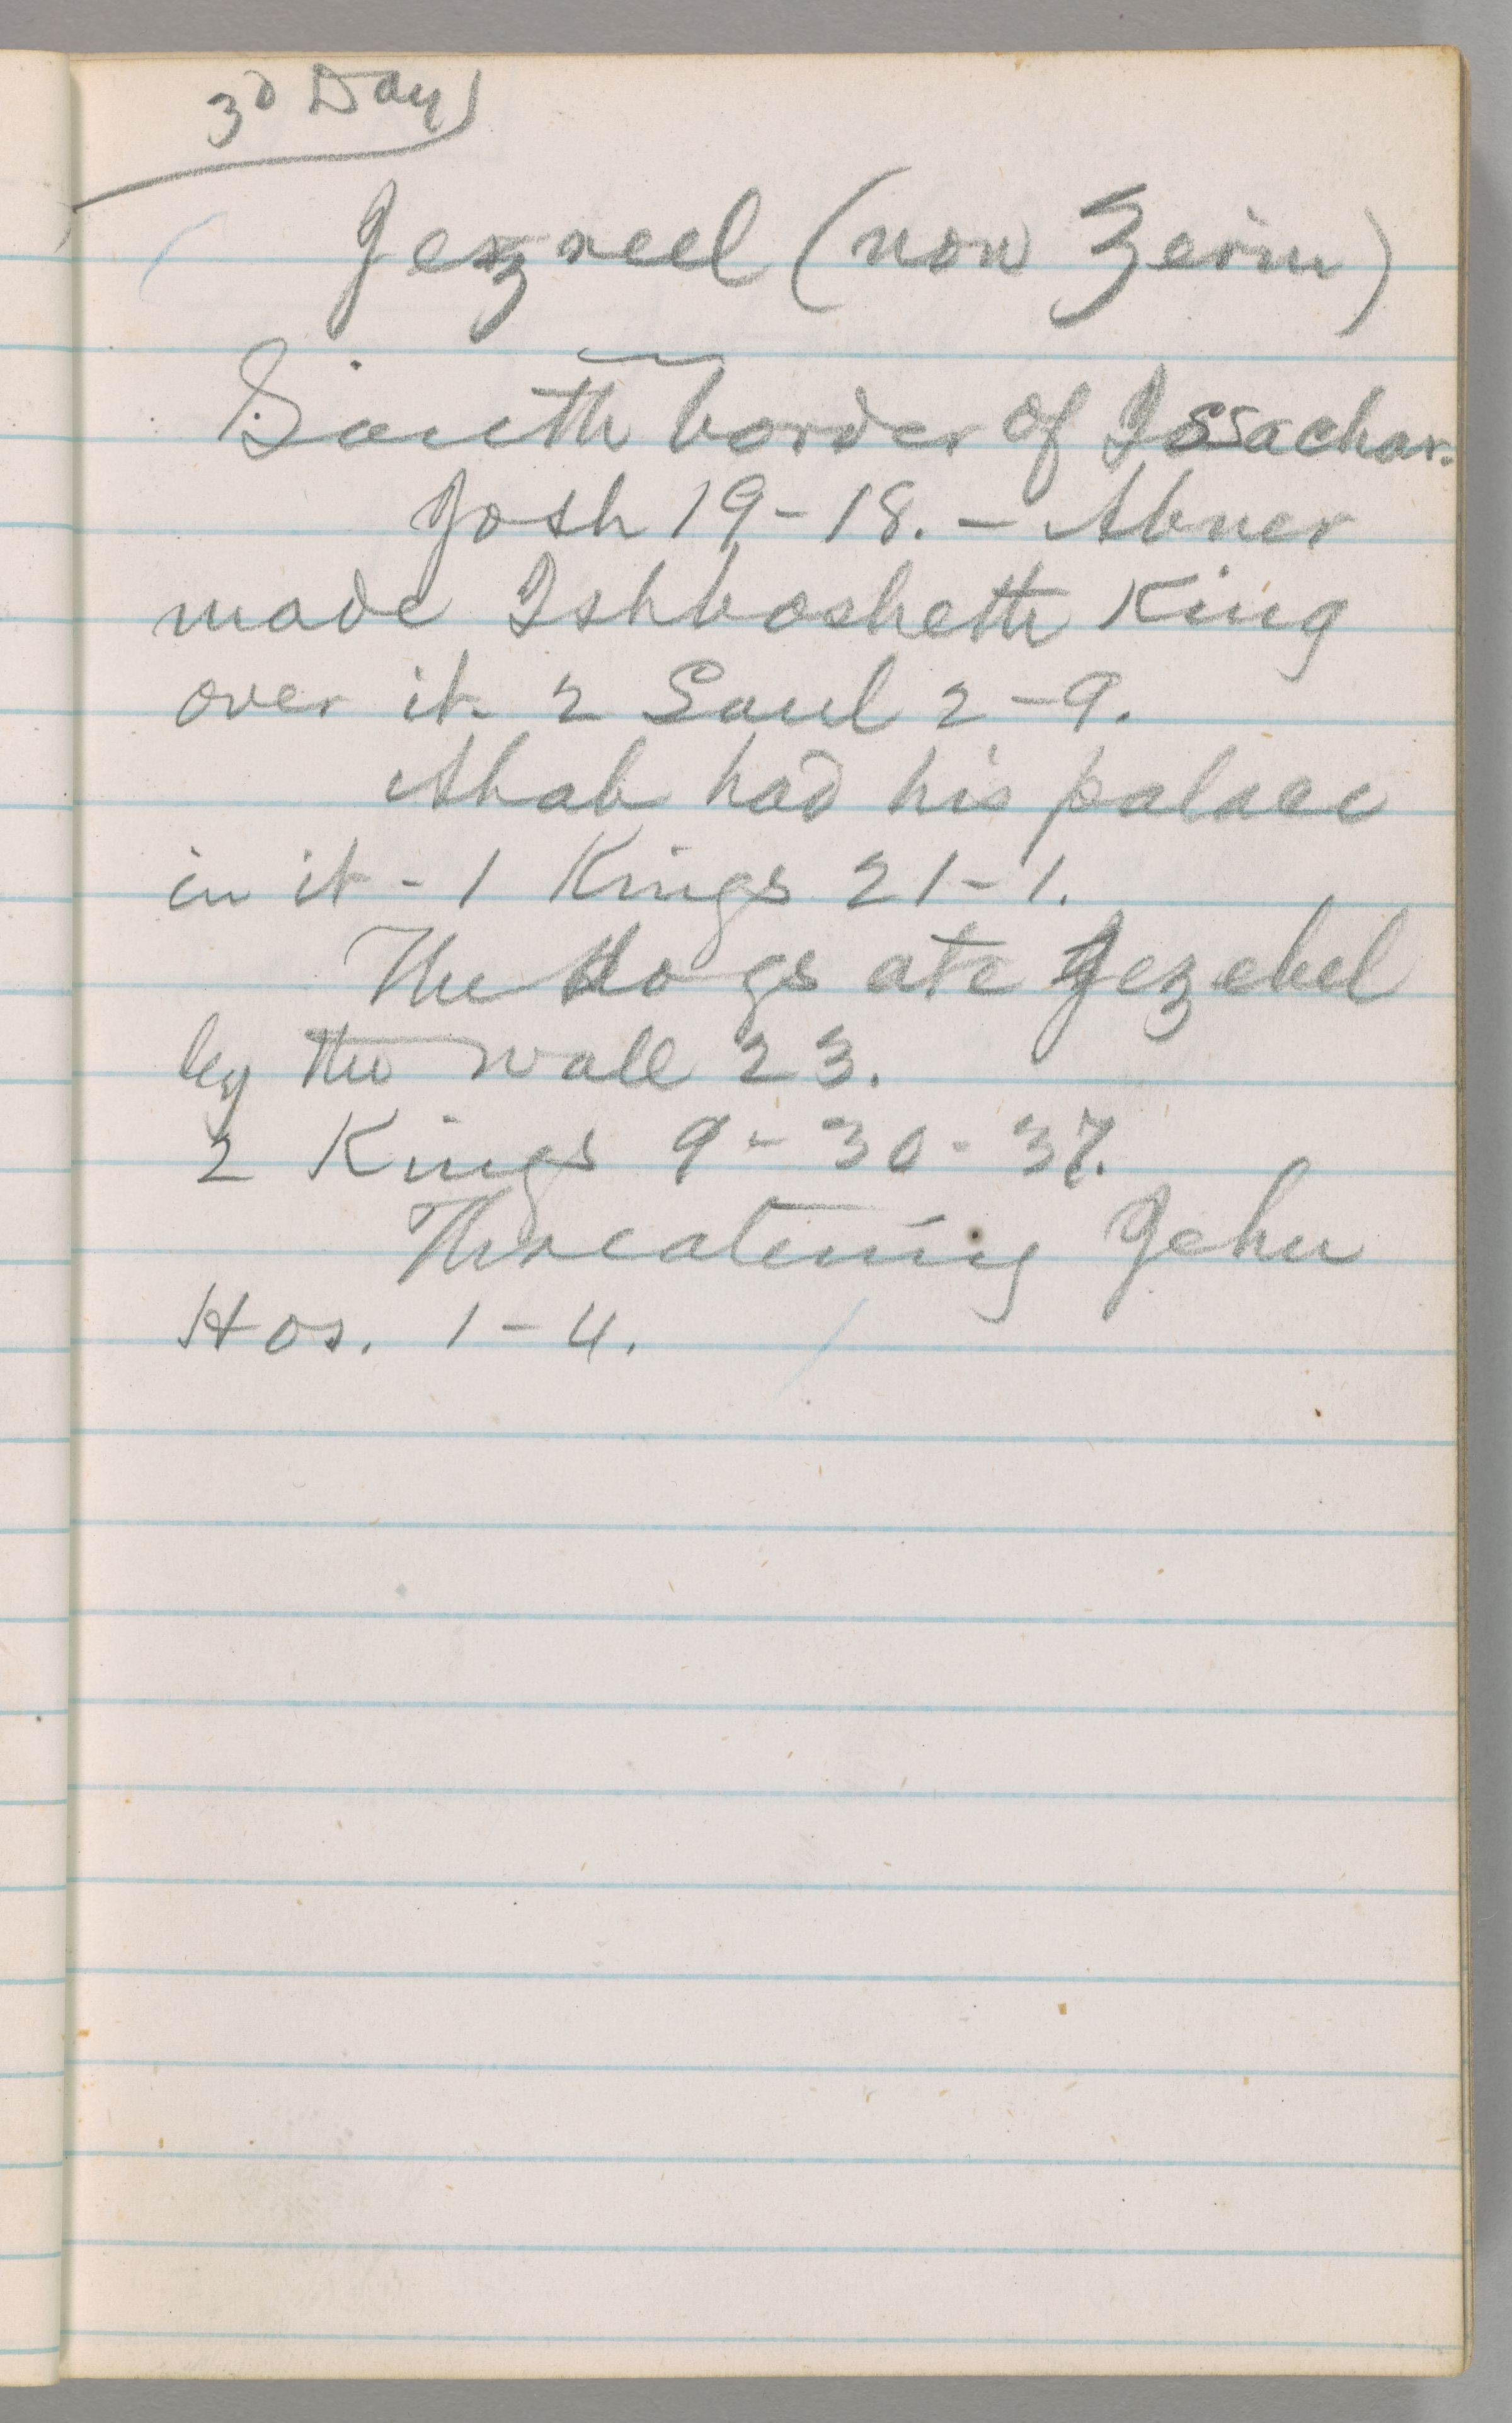 3d Day
Jezreel (now Zerin)
South border of Issachar.
Josh 19-18. - Abner
made Ishbosheth King
over it. 2 Saul 2-9.
Ahab had his palace
in it - 1 Kings 21-1.
The dogs ate Jezebel
by the wall 23.
2 Kings 9-30-37.
Threatening Jehu
Hos. 1-4.